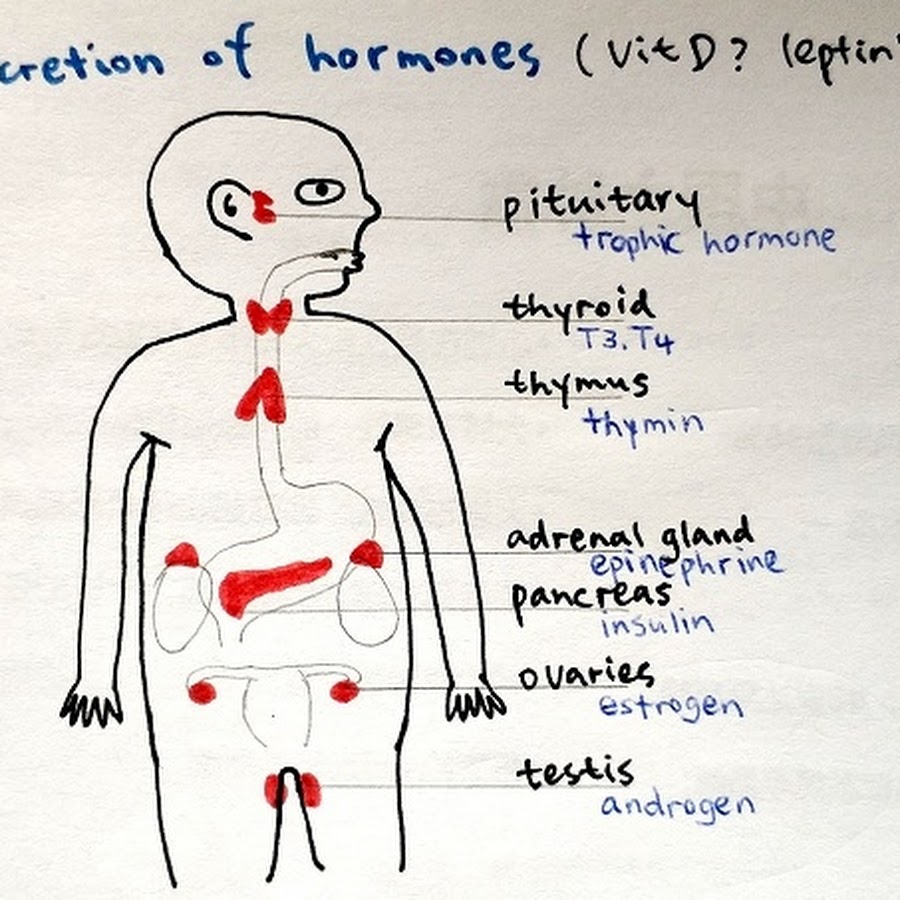 cretion of hormones (Vit D? leptin
pituitary
trophic hormone
thyroid
T3.T4
thymus
thymin
adrenal gland
epinephrine
pancreas
insulin
ovaries
estrogen
testis
androgen